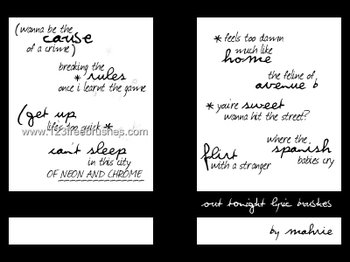 (wanna be the
cause
of a crime)
breaking the
* rules
once i learnt the game
(get up
life's too quick *
can't sleep
in this city
OF NEON AND CHROME
www.123freebrushes.com
* feels too damn
much like
home
the feline of
avenue b
* you're sweet
wanna hit the street?
where the
spanish
babies cry
flirt
with a stranger
out tonight lyric brushes
by mahrie